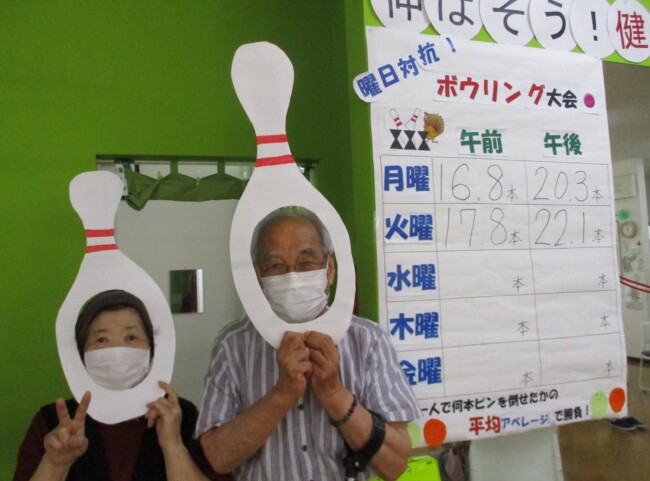 伸ばそう!健
曜日対抗!
ボウリング大会
午前 午後
月曜 16.8本 20.3本
火曜 17.8本 22.1本
水曜 本 本
木曜 本 本
金曜 本 本
一人で何本ピンを倒せたかの
平均アベレージで勝負!